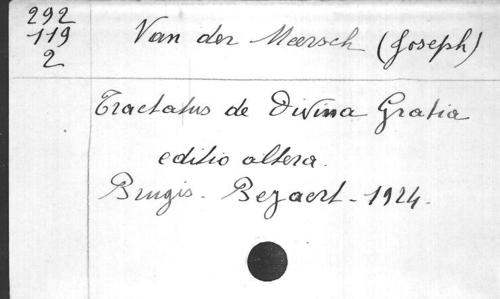 292
119
2
Van der Meersch (Joseph)
Tractatus de Divina Gratia
editio altera.
Brugis. Beyaert - 1924.